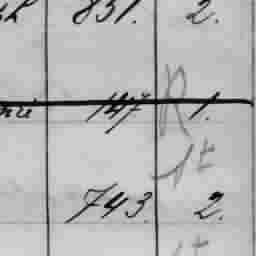 831. 2.
147 R 1.
1t
743. 2.